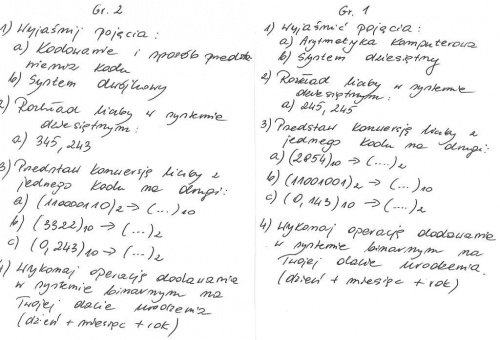 Gr. 2
1) Wyjaśnij pojęcia:
a) Kodowanie i sposób przedsta
nienia kodu
b) System dwójkowy
2) Rozkład liczby w systemie
dziesiętnym:
a) 345, 243
3) Przedstaw konwersję liczby z
jednego kodu na drugi:
a) (11000010)₂ → (...)₁₀
b) (3322)₁₀ → (...)₂
c) (0,243)₁₀ → (...)₂
4) Wykonaj operację dodawania
w systemie binarnym na
Twojej dacie urodzenia
(dzień + miesiąc + rok)
Gr. 1
1) Wyjaśnić pojęcia:
a) Arytmetyka komputerowa
b) System dziesiętny
2) Rozkład liczby w systemie
dziesiętnym:
a) 245, 245
3) Przedstaw konwersję liczby z
jednego kodu na drugi:
a) (2854)₁₀ → (...)₂
b) (11001001)₂ → (...)₁₀
c) (0,143)₁₀ → (....)₂
4) Wykonaj operację dodawania
w systemie binarnym na
Twojej dacie urodzenia.
(dzień + miesiąc + rok)